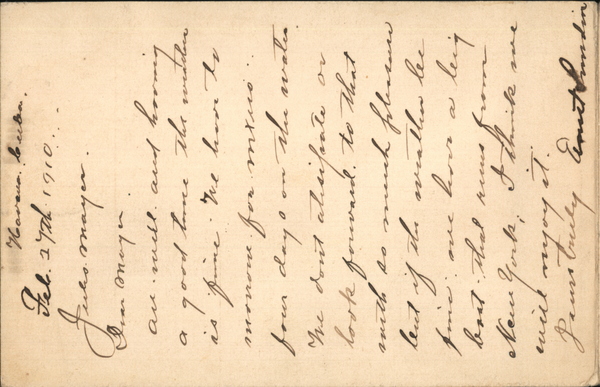 Havana Cuba.
Feb. 27th 1910.
Jules Mayer.
Dear Mayer
all well and having
a good time the weather
is fine. We leave to
morrow for
four days on the water.
We dont or
look forward to that
with so much pleasure
but if the weather be
fine we have a big
boat that runs from
New York. I think we
will enjoy it.
Yours truly